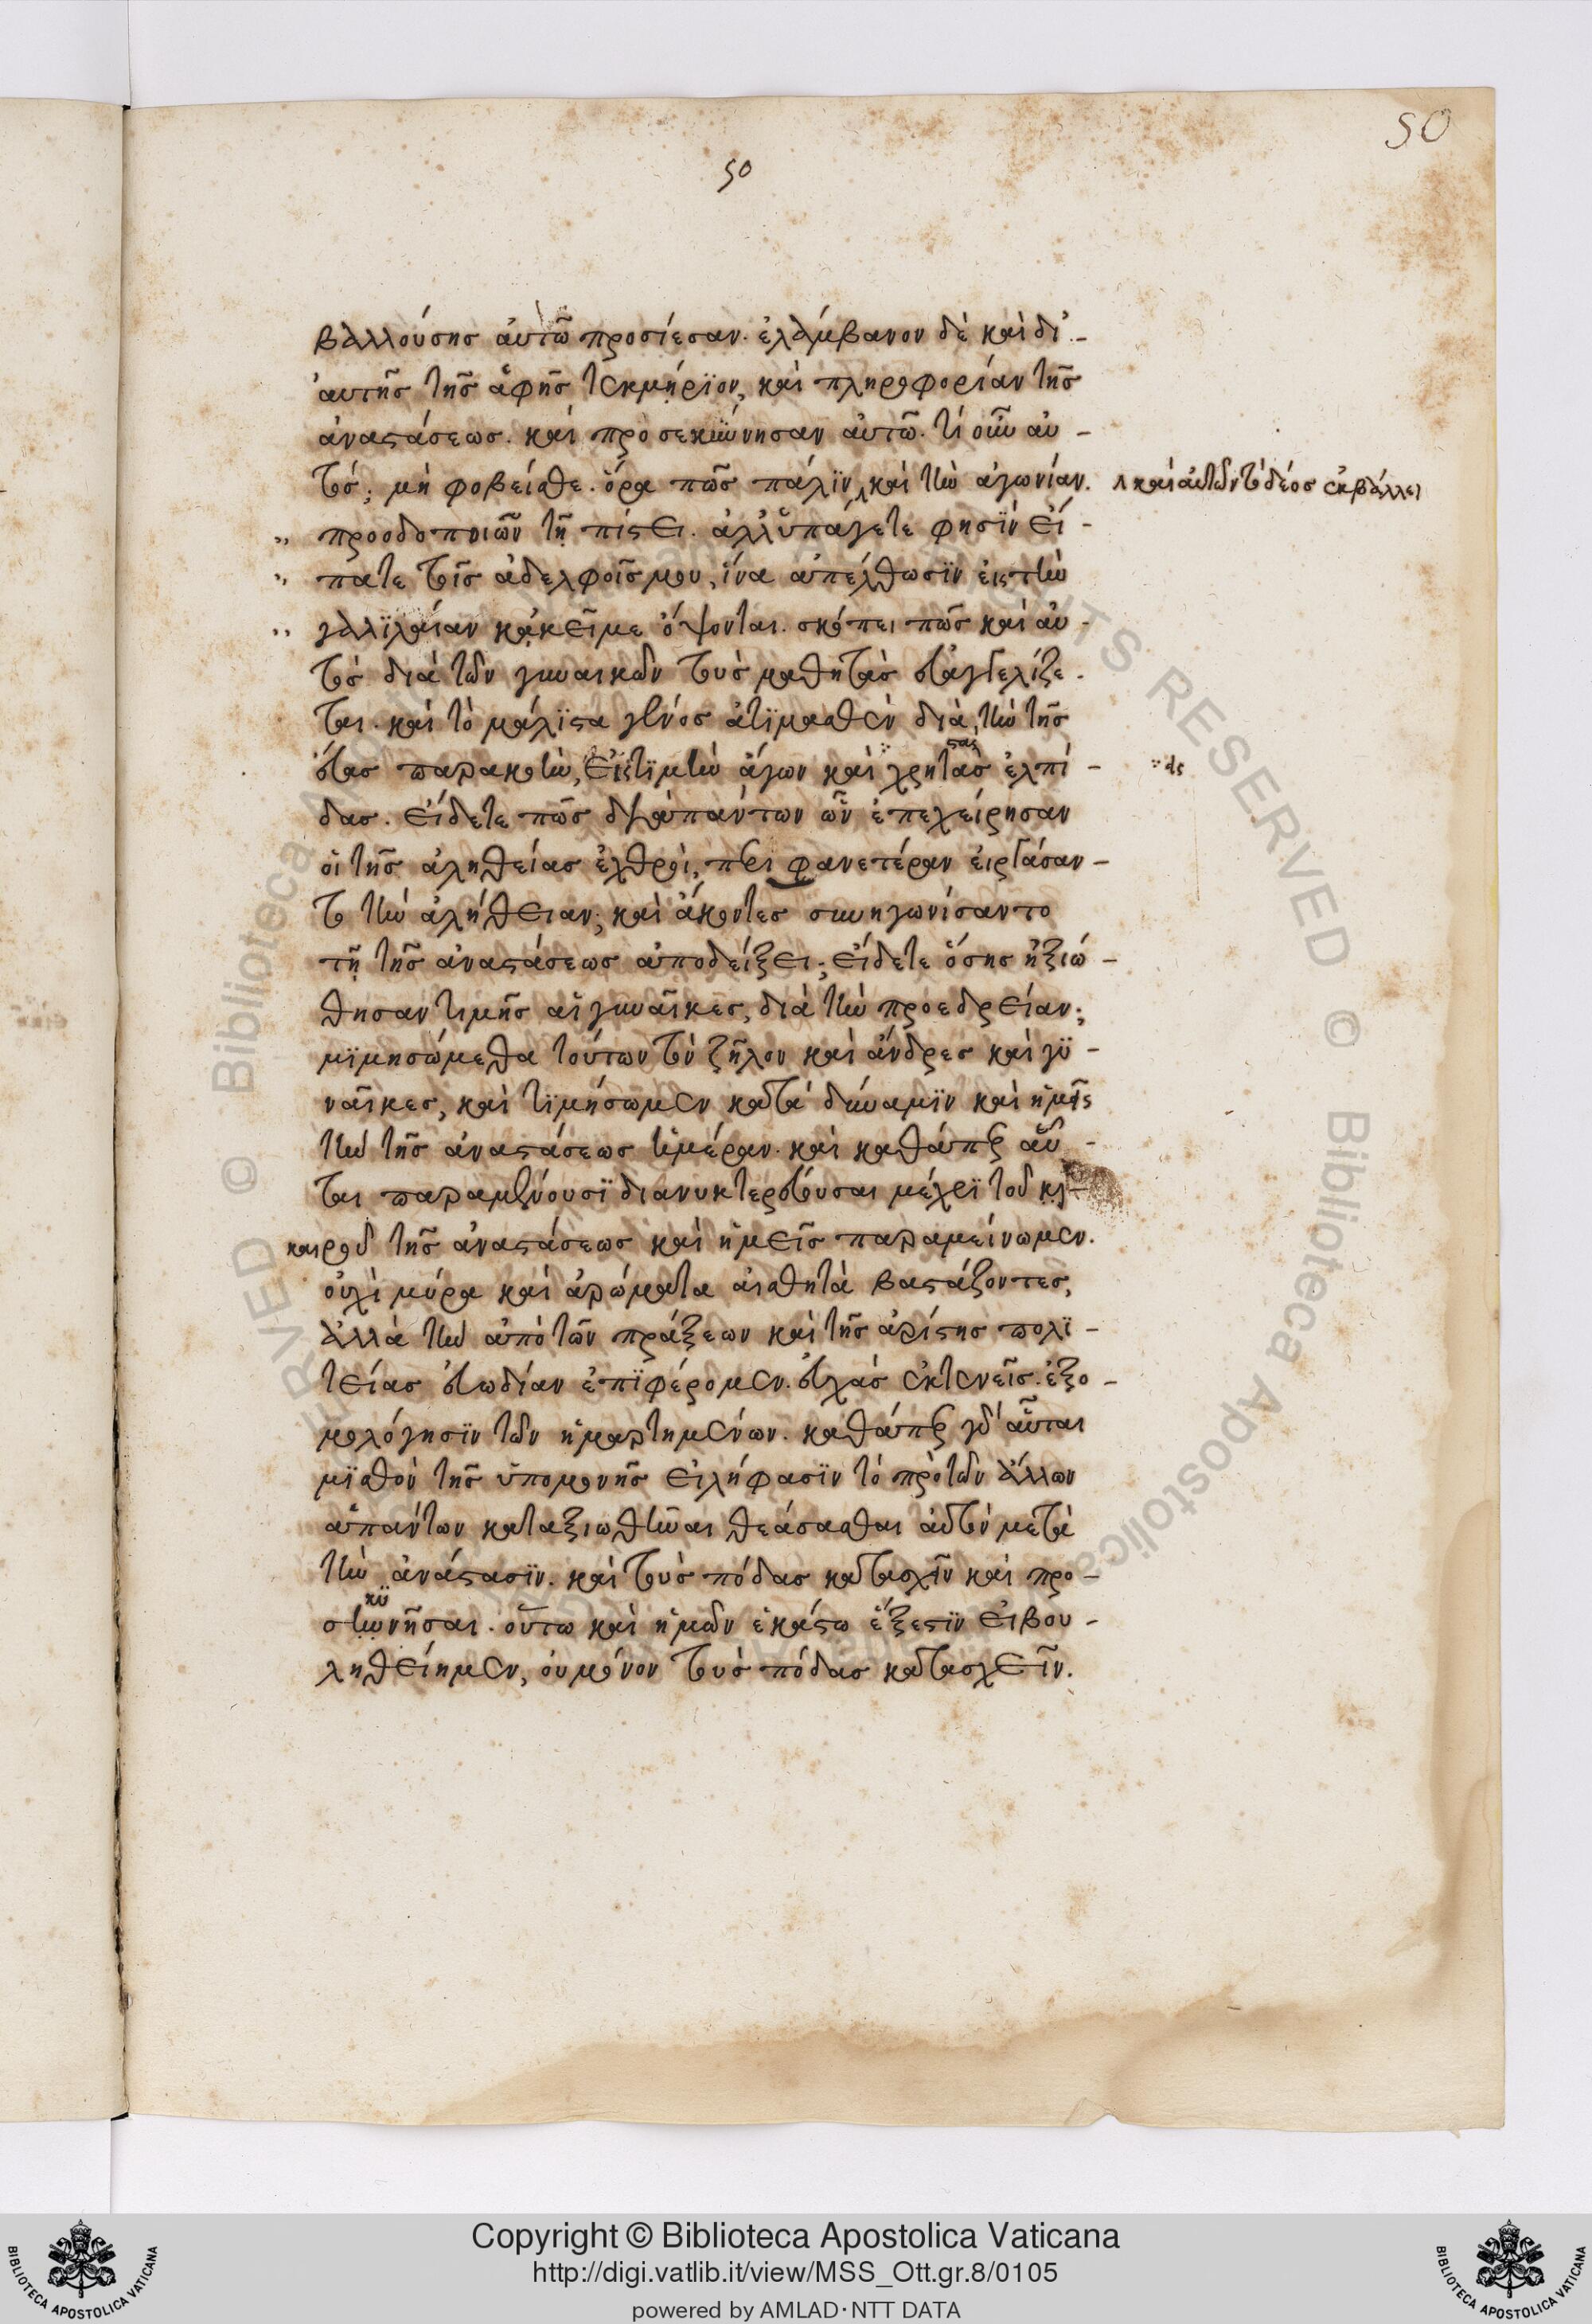 50
50
βαλλούσης αὐτῶ προσίεσαν. ἐλάμβανον δὲ καὶ δι’ -
αὐτῆς τῆς ἁφῆς τεκμήρϊον, καὶ πληροφορίαν τῆς
ἀναστάσεως. καὶ προσεκύνησαν αὐτῶ. τί οὖν αὐ -
τός; μὴ φοβεῖσθε. ὅρα πῶς πάλϊν, καὶ τὴν ἀγωνίαν.
καὶ αὐτῶν τὸ δέος ἐκβάλλει
προοδοποιῶν τῆ πίστει. ἀλλ’ ὑπάγετε φησϊν εἴ -
πατε τοῖς ἀδελφοῖς μου, ἵνα ἀπέλθωσϊν εἰς τὴν
γαλϊλαίαν κἀκεῖ με ὄψονται. σκόπει πῶς καὶ αὐ -
τὸς διὰ τῶν γυναικῶν τοὺς μαθητὰς εὐαγγελίζε -
ται. καὶ τὸ μάλϊστα γένος ἀτϊμασθὲν διὰ τὴν τῆς
εὔας παρακοὴν, εἰς τϊμὴν ἄγων καὶ χρηστὰς ἐλπί -
δας. εἴδετε πῶς δι’ ἁπάντων ὧν ἐπεχείρησαν
οἱ τῆς ἀληθείας ἐχθροὶ, περιφανετέραν εἰργάσαν -
το τὴν ἀλήθειαν; καὶ ἄκοντες συνηγωνίσαντο
τῆ τῆς ἀναστάσεως ἀποδείξει; εἴδετε ὅσης ἠξιώ -
θησαν τιμῆς αἱ γυναῖκες, διὰ τὴν προεδρείαν;
μϊμησώμεθα τούτων τὸν ζῆλον καὶ ἄνδρες καὶ γϋ -
ναῖκες, καὶ τϊμήσωμεν κατὰ δύναμϊν καὶ ἡμεῖς
τὴν τῆς ἀναστάσεως ἡμέραν. καὶ καθάπερ αὗ -
ται παραμένουσϊ διανυκτερεύουσαι μέχρϊ τοῦ
καιροῦ τῆς ἀναστάσεως καὶ ἡμεῖς παραμείνωμεν.
οὐχὶ μύρα καὶ ἀρώματα αἰσθητὰ βαστάζοντες,
ἀλλὰ τὴν ἀπὸ τῶν πράξεων καὶ τῆς ἀρίστης πολϊ -
τείας εὐωδίαν ἐπϊφέρομεν. εὐχὰς ἐκτενεῖς. ἐξο -
μολόγησϊν τῶν ἡμαρτημένων. καθάπερ γὰρ αὗται
μϊσθὸν τῆς ὑπομονῆς εἰλήφασϊν τὸ πρὸ τῶν ἄλλων
ἁπάντων καταξιωθῆναι θεάσασθαι αὐτὸν μετὰ
τὴν ἀνάστασϊν. καὶ τοὺς πόδας κατασχεῖν καὶ προ -
σκϋνῆσαι. οὕτω καὶ ἡμῶν ἑκάστω ἔξεστϊν εἰ βου -
ληθείημεν, οὐ μόνον τοὺς πόδας κατασχεῖν.
Copyright © Biblioteca Apostolica Vaticana
http://digi.vatlib.it/view/MSS_Ott.gr.8/0105
powered by AMLAD·NTT DATA
BIBLIOTECA APOSTOLICA VATICANA
BIBLIOTECA APOSTOLICA VATICANA